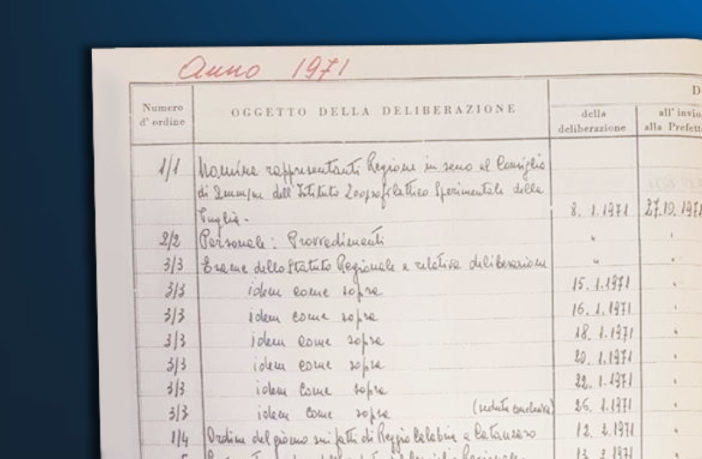 Anno 1971
Numero d'ordine OGGETTO DELLA DELIBERAZIONE della deliberazione all'invio alla Prefett
1/1 Nomina rappresentanti Regione in seno al Consiglio
di Amm/ne dell'Istituto Zooprofilattico Sperimentale della
Puglia. 8. 1.1971 27.10.1971
2/2 Personale: Provvedimenti "
3/3 Esame dello Statuto Regionale e relativa deliberazione "
3/3 idem come sopra 15. 1.1971
3/3 idem come sopra 16. 1.1971
3/3 idem come sopra 18. 1.1971
3/3 idem come sopra 20. 1.1971
3/3 idem come sopra 22. 1.1971
3/3 idem come sopra (seduta conclusiva) 26. 1.1971
1/4 Ordine del giorno sui fatti di Reggio Calabria e Catanzaro 12. 2.1971
13. 2.1971